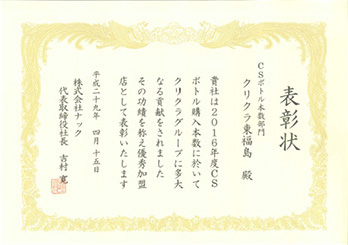 表彰状
CSボトル本数部門
クリクラ東福島 殿
貴社は2016年度CS
ボトル購入本数に於いて
クリクラグループに多大
なる貢献をされました
その功績を称え優秀加盟
店として表彰いたします
平成二十九年 四月 十五日
株式会社ナック
代表取締役社長 吉村 寛